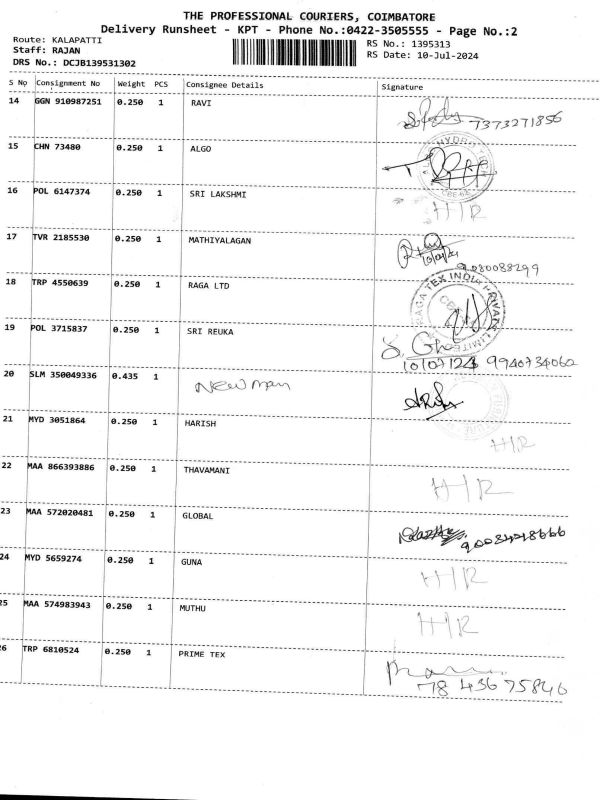 THE PROFESSIONAL COURIERS, COIMBATORE
Delivery Runsheet - KPT - Phone No.:0422-3505555 - Page No.:2
Route: KALAPATTI
RS No.: 1395313
Staff: RAJAN
RS Date: 10-Jul-2024
DRS No.: DCJB139531302
S No Consignment No Weight PCS Consignee Details Signature
14 GGN 910987251 0.250 1 RAVI
7373271856
15 CHN 73480 0.250 1 ALGO
16 POL 6147374 0.250 1 SRI LAKSHMI HIR
17 TVR 2185530 0.250 1 MATHIYALAGAN
9080088299
18 TRP 4550639 0.250 1 RAGA LTD RAGA TEX INDIA PRIVATE LIMITED
19 POL 3715837 0.250 1 SRI REUKA
10/07/24 9940734062
20 SLM 350049336 0.435 1 New man
21 MYD 3051864 0.250 1 HARISH HIR
22 MAA 866393886 0.250 1 THAVAMANI HIR
23 MAA 572020481 0.250 1 GLOBAL
24 MYD 5659274 0.250 1 GUNA HIR
25 MAA 574983943 0.250 1 MUTHU HIR
26 TRP 6810524 0.250 1 PRIME TEX
78 436 75846